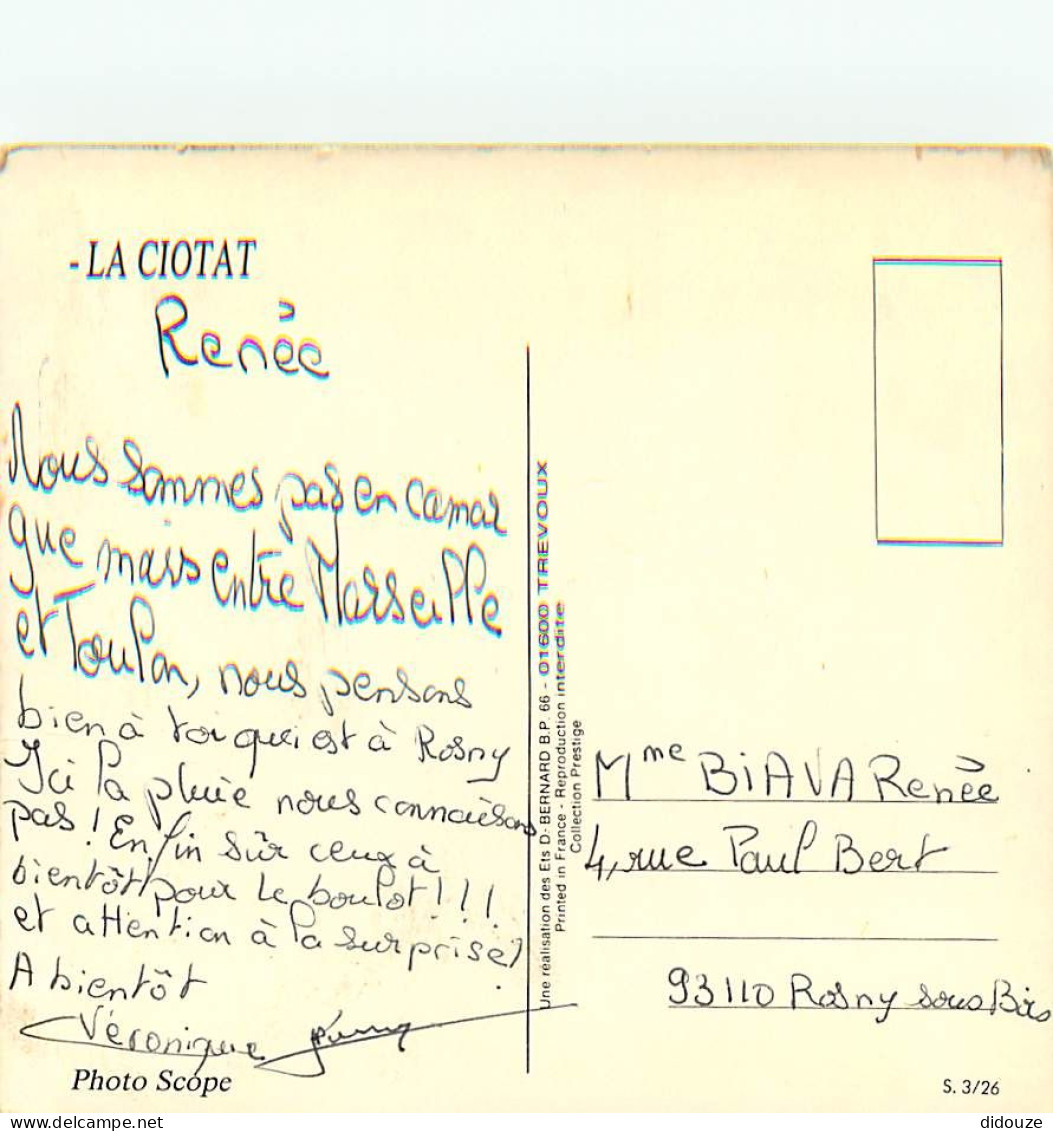 - LA CIOTAT
Renée
Nous sommes pas en camar
gue mais entre Marseille
et Toulon, nous pensons
bien à toi qui est à Rosny
Ici la pluie nous connaisons
pas ! Enfin sûr ceux à
bientôt pour le boulot !!!
et attention à la surprise !
A bientôt
Véronique
Photo Scope
Une réalisation des Ets D. BERNARD B.P. 66 - 01600 TREVOUX
Printed in France - Reproduction interdite
Collection Prestige
Mme BIAVA Renée
4, rue Paul Bert
93110 Rosny sous Bois
S. 3/26
didouze